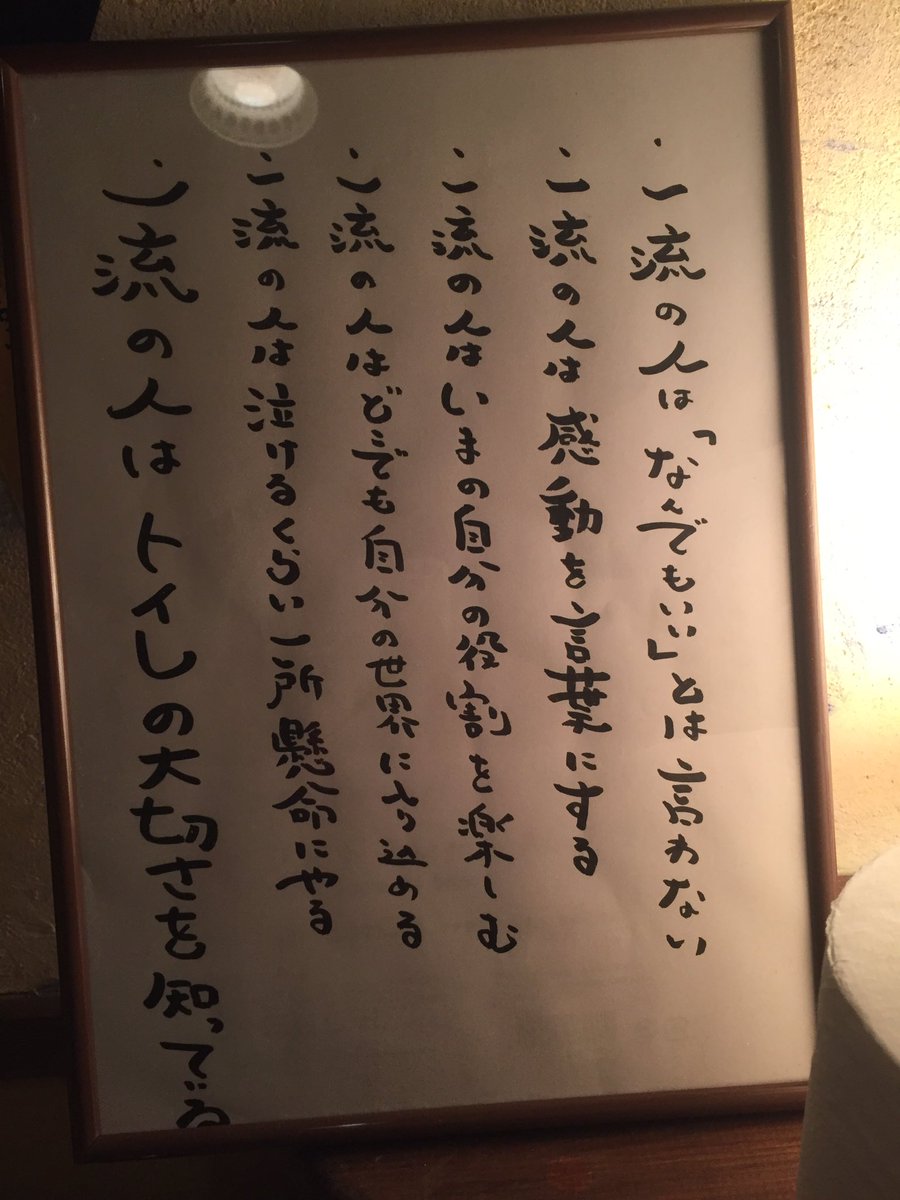 ・一流の人は「なんでもいい」とは言わない
・一流の人は感動を言葉にする
・一流の人はいまの自分の役割を楽しむ
・一流の人はどこでも自分の世界に入り込める
・一流の人は泣けるくらい一所懸命にやる
・一流の人はトイレの大切さを知っている